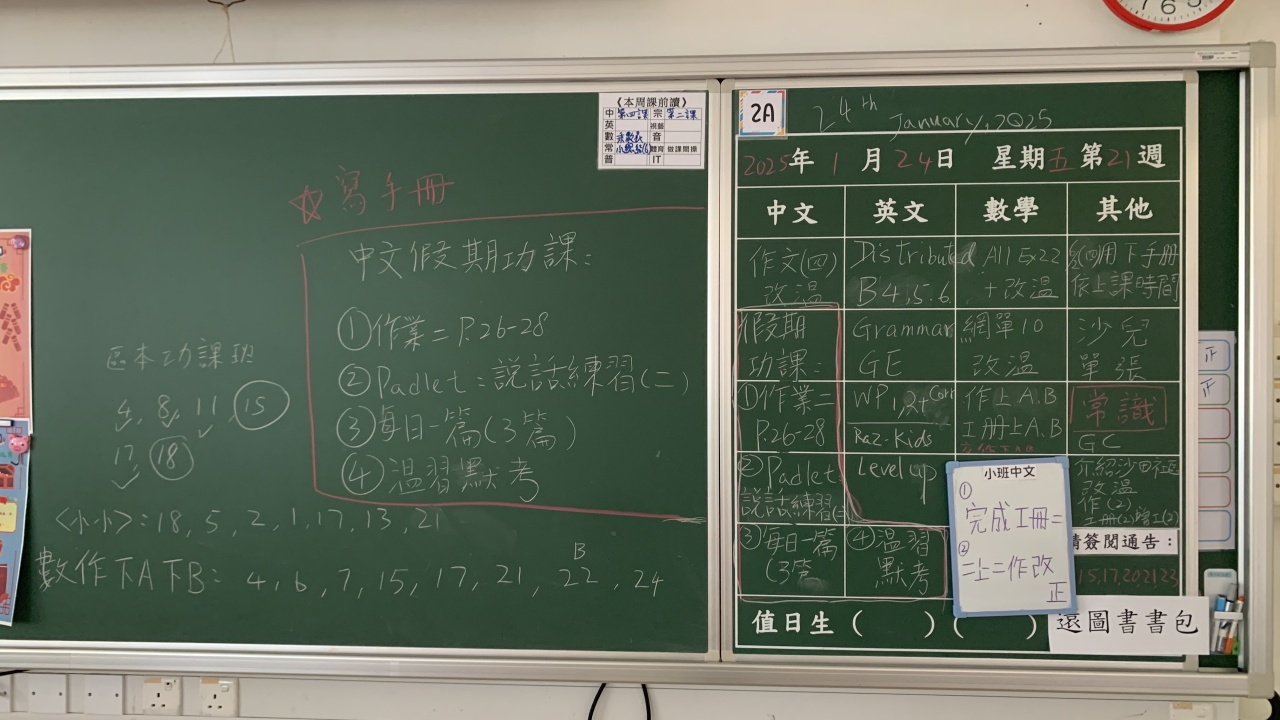 7 6 5
《本周課前讀》
中 第四課 宗 第二課
英 視藝
數 乘數表 音
常 小縣的(6) 體育 做課間操
普 IT
☆寫手冊
中文假期功課：
①作業二P.26-28
②Padlet：說話練習(二)
③每日一篇(3篇)
④溫習默考
區本功課班
4, 8, 11, 15
17, 18
<小小>：18, 5, 2, 1, 17, 13, 21
數作下A下B： 4, 6, 7, 15, 17, 21, 22, 24
B
2A
24th January, 2025
2025年 1 月 24日 星期五 第21週
中文 英文 數學 其他
作文(四)
改溫
Distributed
B4,5,6
All Ex22
+改溫
用下手冊
依上課時間
假期
功課：
Grammar
GE
網單10
改溫
沙兒
單張
①作業二
P.26-28
WP1,2+Corr
Raz-Kids
作上A.B
工冊上A.B
常識
GC
②Padlet
說話練習(二
Level up
介紹沙田社區
改溫
作(2)
工冊(2)
③每日一篇
(3篇
④溫習
默考
請簽閱通告：
15,17,20,21,23
小班中文
①
完成工冊二
②
二上二作改
正
值日生（ ）（ ）
還圖書書包
正
正